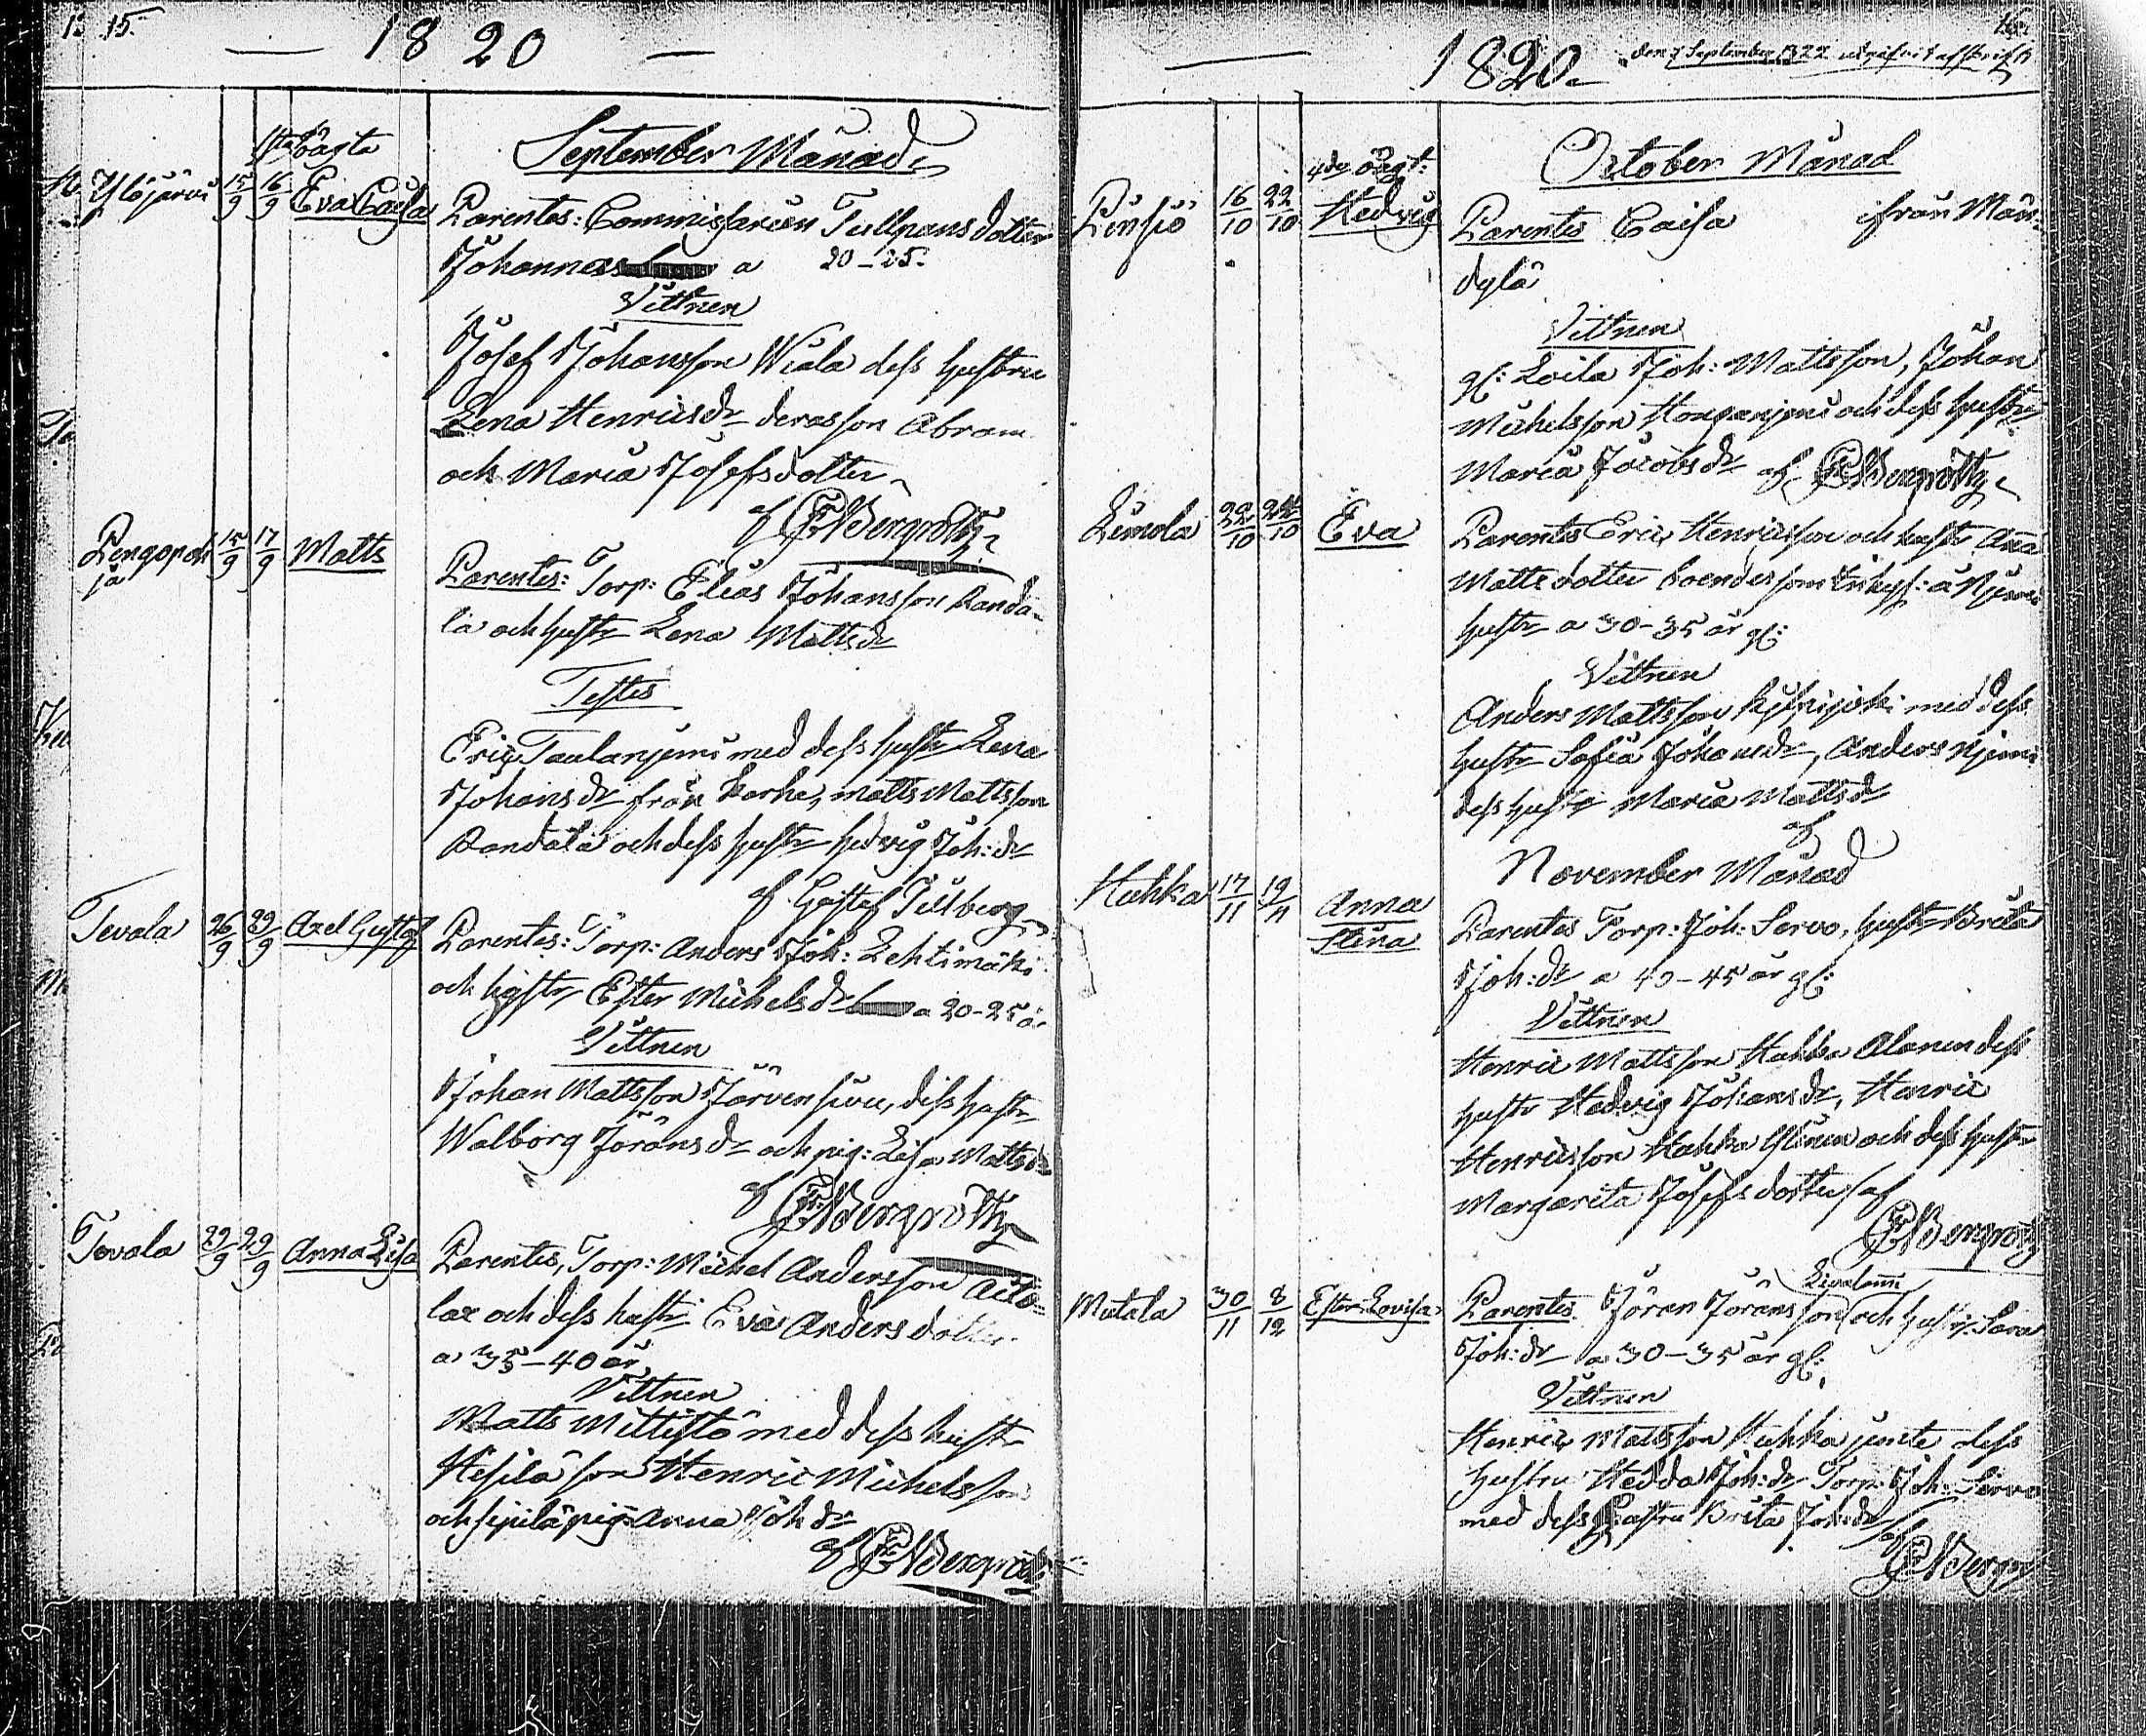 15.
1820
1sta oägta
September Månad
Ylöjärvi 15/9 16/9 Eva Caisa
Parentes: Commissarien Tullpans dotter
Johanna a 20-25.
Vittnen
Josef Johansson Wiala dess hustru
Lena Henricsdr deras son Abram
och Maria Josefsdotter
af Bergroth
Pengopoh
ja 15/9 17/9 Matts
Parentes: Torp: Elias Johansson Randa-
la och hustr Lena Mattsdr
Testes
Eric Taulaniemi med dess hustr Lena
Johansdr från Karhe, Matts Mattsson
Randala och dess hustr Hedvig Joh: dr
af Gustaf Tilberg
Tevala 26/9 29/9 Axel Gustaf
Parentes: Torp: Anders Joh: Lehtimäki
och hustr Ester Michelsdr a 20-25 år
Vittnen
Johan Mattsson Järvensivu, dess hustr
Walborg Jöransdr och pig: Lisa Mattsdr
af Bergroth
Tevala 29/9 29/9 Anna Lisa
Parentes, Torp: Michel Andersson
lax och dess hustr Eva Andersdotter
a 35-40 år
Vittnen
Matts Mittistö med dess hustr
son Henric Michelsson
och pig: Anna Joh dr
af Bergroth
16.
1820
den 7 September 1822
4de oägt:
October Månad
Pinsiö 16/10 22/10 Hedvig
Parentes Caisa ifrån Män-
dylä
Vittnen
gl: Loila Joh: Mattsson, Johan
Michelsson och dess hustr
Maria Jacobsdr af Bergroth
Limola 22/10 24/10 Eva
Parentes Eric Henricsson och hustr Anna
Mattsdotter boendes som Inhys: å Niemi
hustr a 30-35 år gl:
Vittnen
Anders Mattsson med dess
hustr Sofia Johansdr, Anders Niemi
dess hustr Maria Mattsdr
af
November Månad
Hahka 17/11 19/11 Anna
Stina
Parentes Torp: Joh: Servo, hustr Brita
Joh: dr a 40-45 år gl:
Vittnen
Henric Mattsson Hahka Alanen dess
hustr Hedvig Johansdr, Henric
Henricsson Hahka Ylinen och dess hustr
Margareta Josefsdotter af
Bergroth
Mutala 30/11 8/12 Ester Lovisa
Parentes Jöran Jöransson och hustr Sara
Joh: dr a 30-35 år gl:
Vittnen
Henric Mattsson Hahka jemte dess
hustru Hedda Joh: dr Torp: Joh: Servo
med dess hustru Brita Joh: dr
af Bergroth